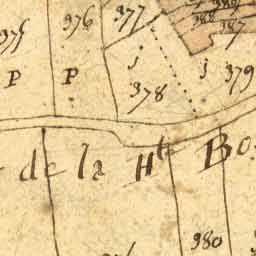 975 976 377 388 387
P P J 378 J 379
de la H^te Bo
980